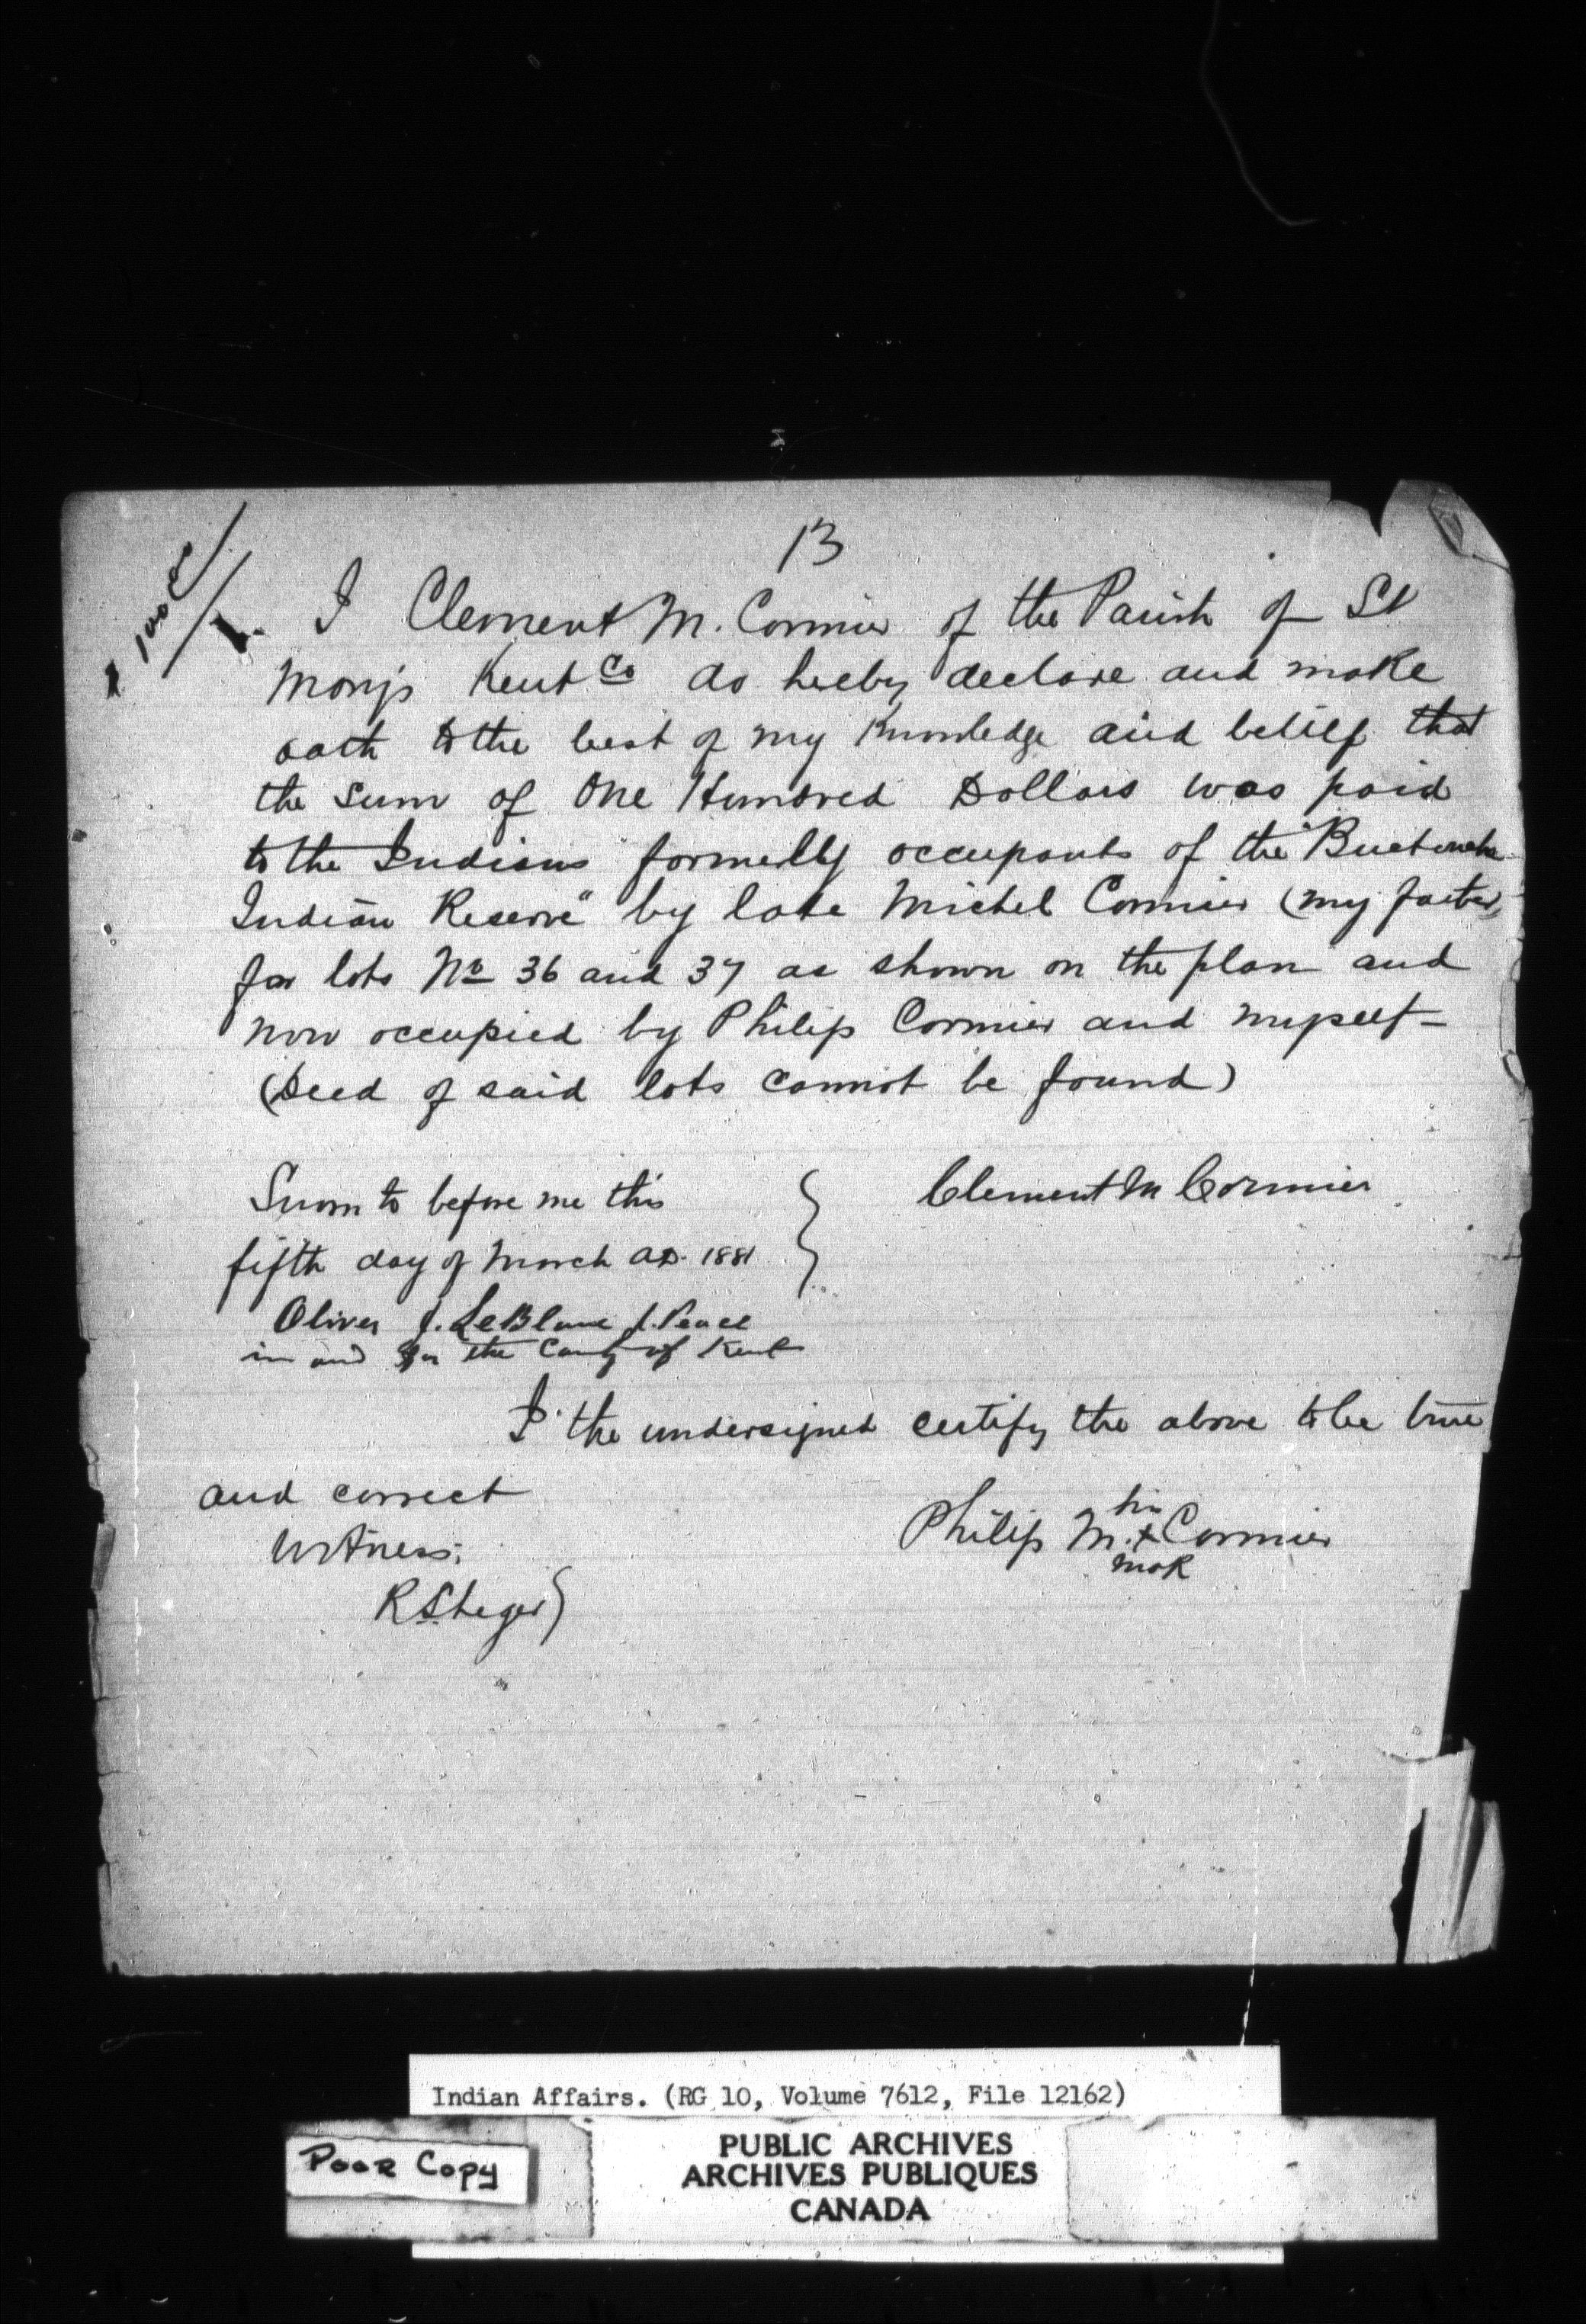 13
I Clement M. Cormier of the Parish of St
Mary's Kent Co do hereby declare and make
oath to the best of my knowledge and belief that
the sum of One Hundred Dollars was paid
to the Indians formerly occupants of the "Buctouche
Indian Reserve" by late Michel Cormier (my father)
for lots No 36 and 37 as shown on the plan and
now occupied by Philip Cormier and myself –
(Deed of said lots cannot be found)
Sworn to before me this
fifth day of March AD. 1881
Clement M Cormier
Oliver J. LeBlanc J. Peace
in and for the County of Kent
I the undersigned certify the above to be true
and correct
Witness;
his
Philip M. x Cormier
mark
Indian Affairs. (RG 10, Volume 7612, File 12162)
Poor Copy
PUBLIC ARCHIVES
ARCHIVES PUBLIQUES
CANADA